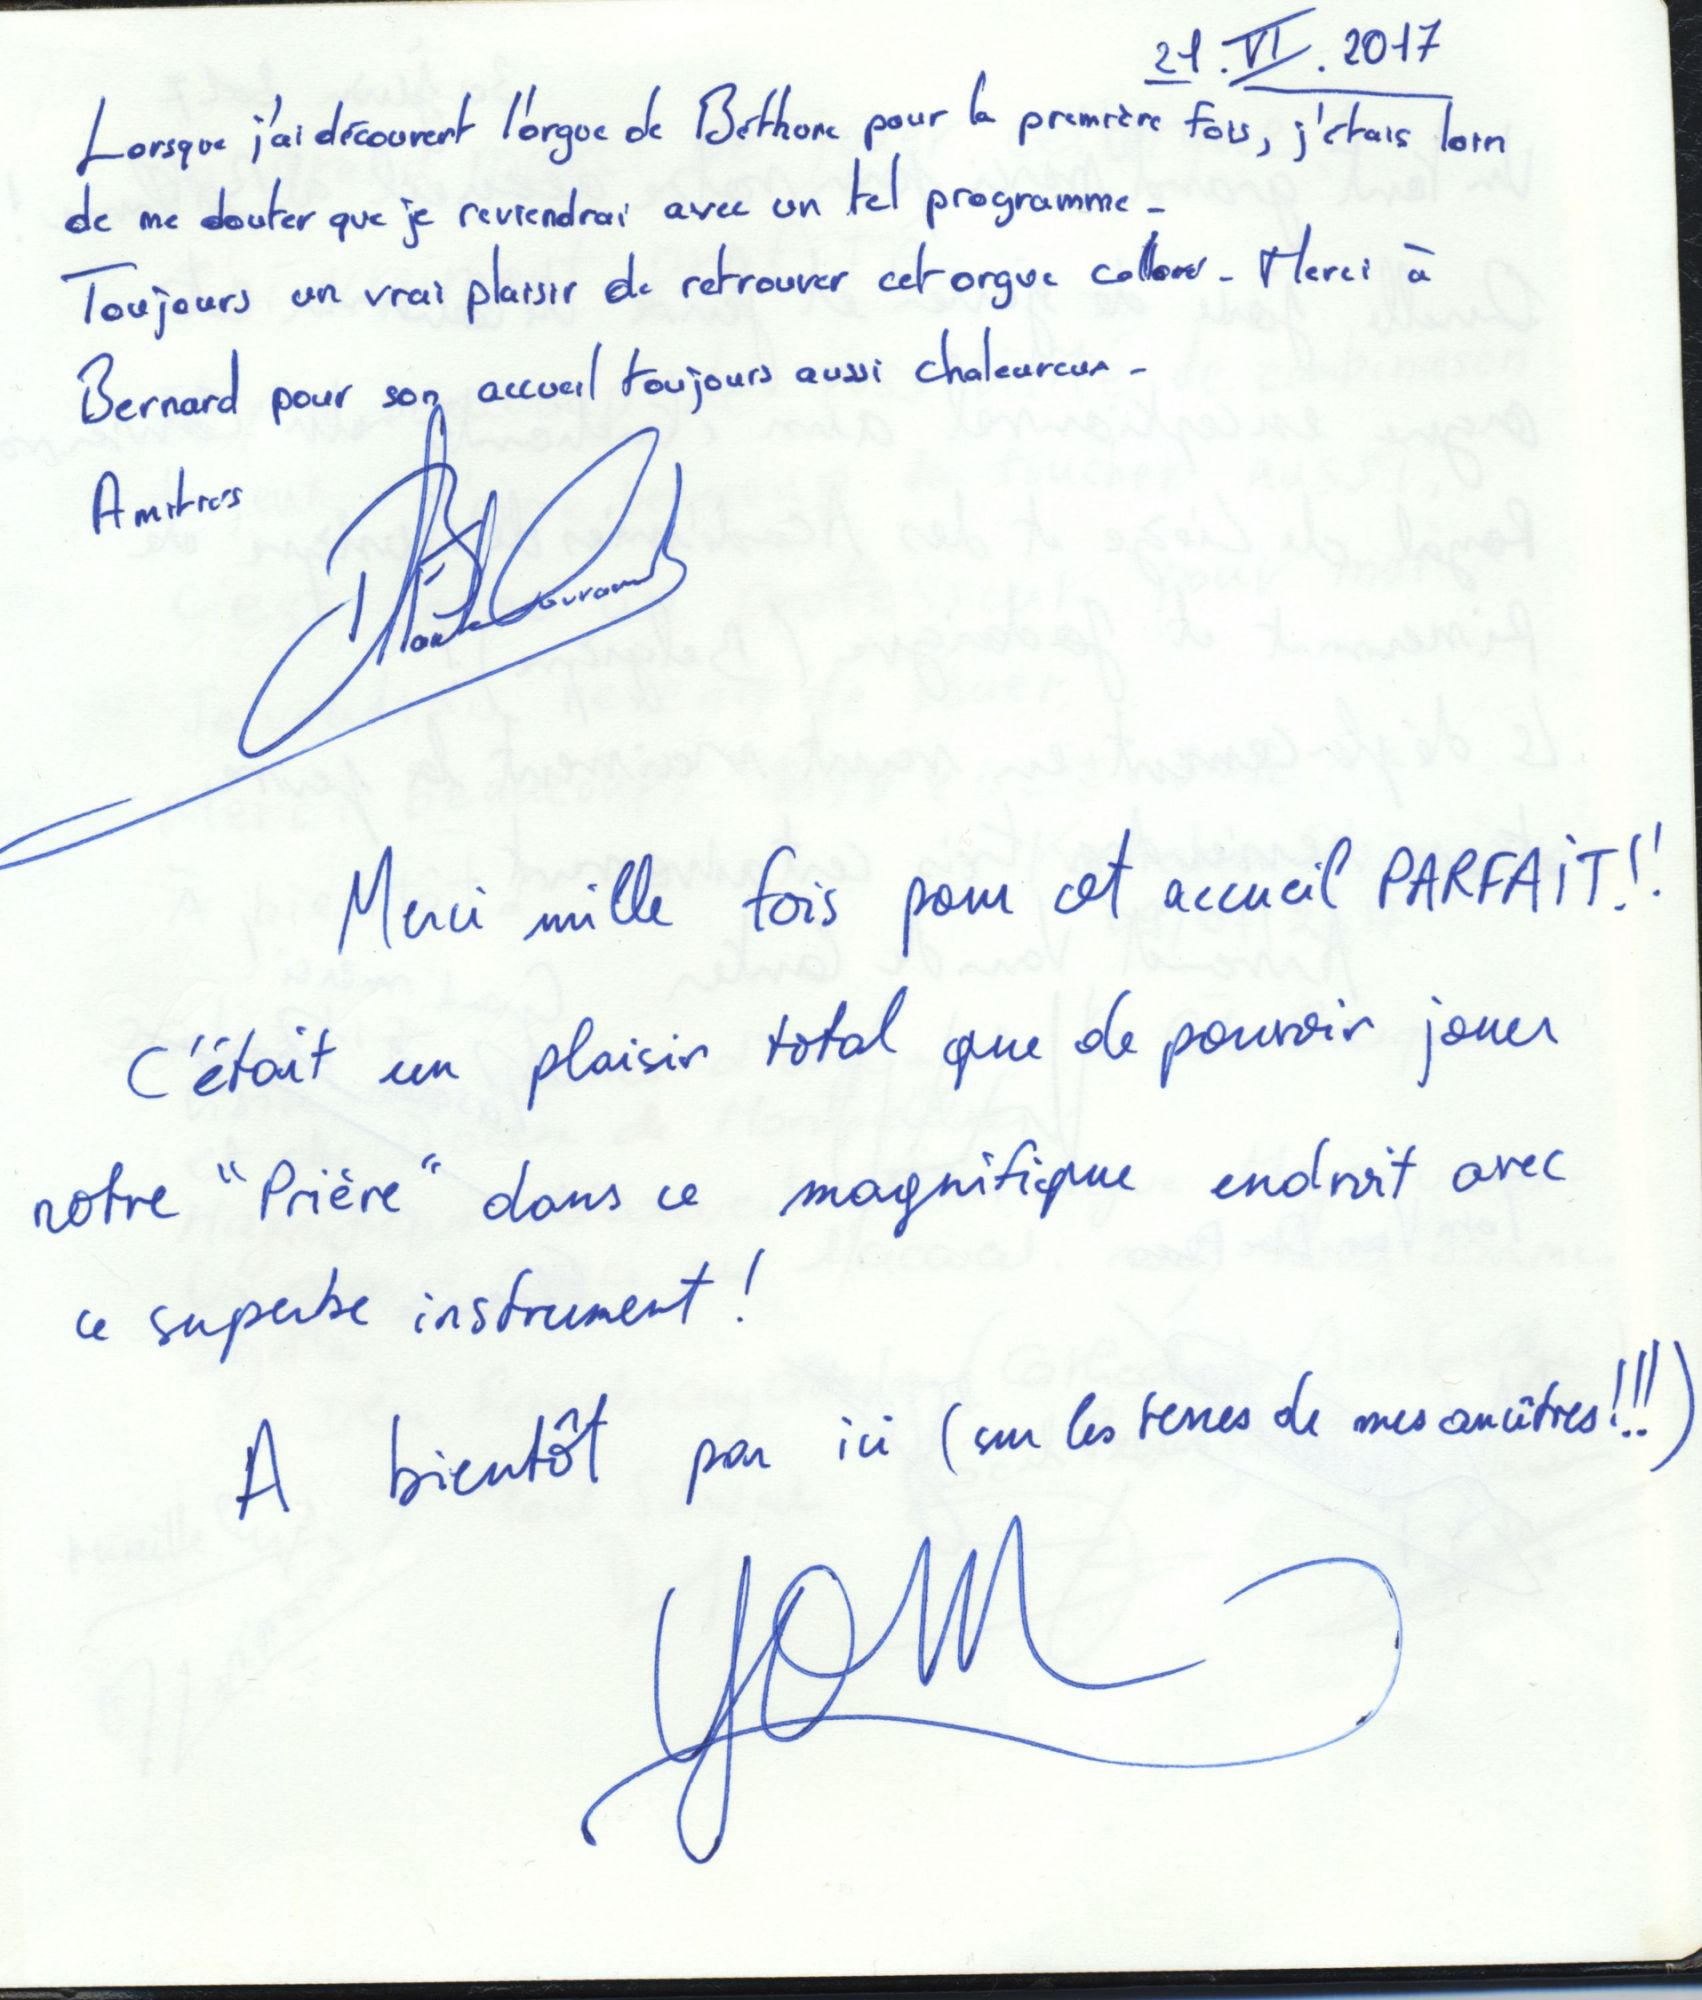 21.VI.2017
Lorsque j'ai découvert l'orgue de Béthune pour la première fois, j'étais loin
de me douter que je reviendrai avec un tel programme -
Toujours un vrai plaisir de retrouver cet orgue - Merci à
Bernard pour son accueil toujours aussi chaleureux -
Amitiés
Merci mille fois pour cet accueil PARFAIT!!
C'était un plaisir total que de pouvoir jouer
notre "Prière" dans ce magnifique endroit avec
ce superbe instrument !
A bientôt par ici (sur les terres de mes ancêtres!!!)
YOM